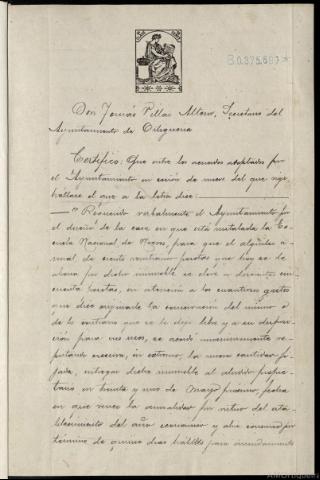 Don Tomás Villar Alfaro, Secretario del
Ayuntamiento de
Certifico: Que entre los acuerdos adoptados por
el Ayuntamiento en sesión de nueve del que rige
hállase el que a la letra dice:
"Requerido verbalmente el Ayuntamiento por
el dueño de la casa en que está instalada la Es-
cuela Nacional de para que el alquiler a-
nual de ciento pesetas que hoy se le
abona por dicho inmueble se eleve a doscientas cin-
cuenta pesetas, en atención a los cuantiosos gastos
que dice originarle la conservación del mismo o
de lo contrario que se le deje libre y a su disposi-
ción para vez, se acordó unánimemente re-
putando excesiva, en extremo, la nueva cantidad fi-
jada, entregar dicho inmueble al aludido propie-
tario en treinta y uno de Mayo próximo, fecha
en que vence la anualidad por
del año economico y abrir concurso por
término de quince días hábiles para arrendamiento